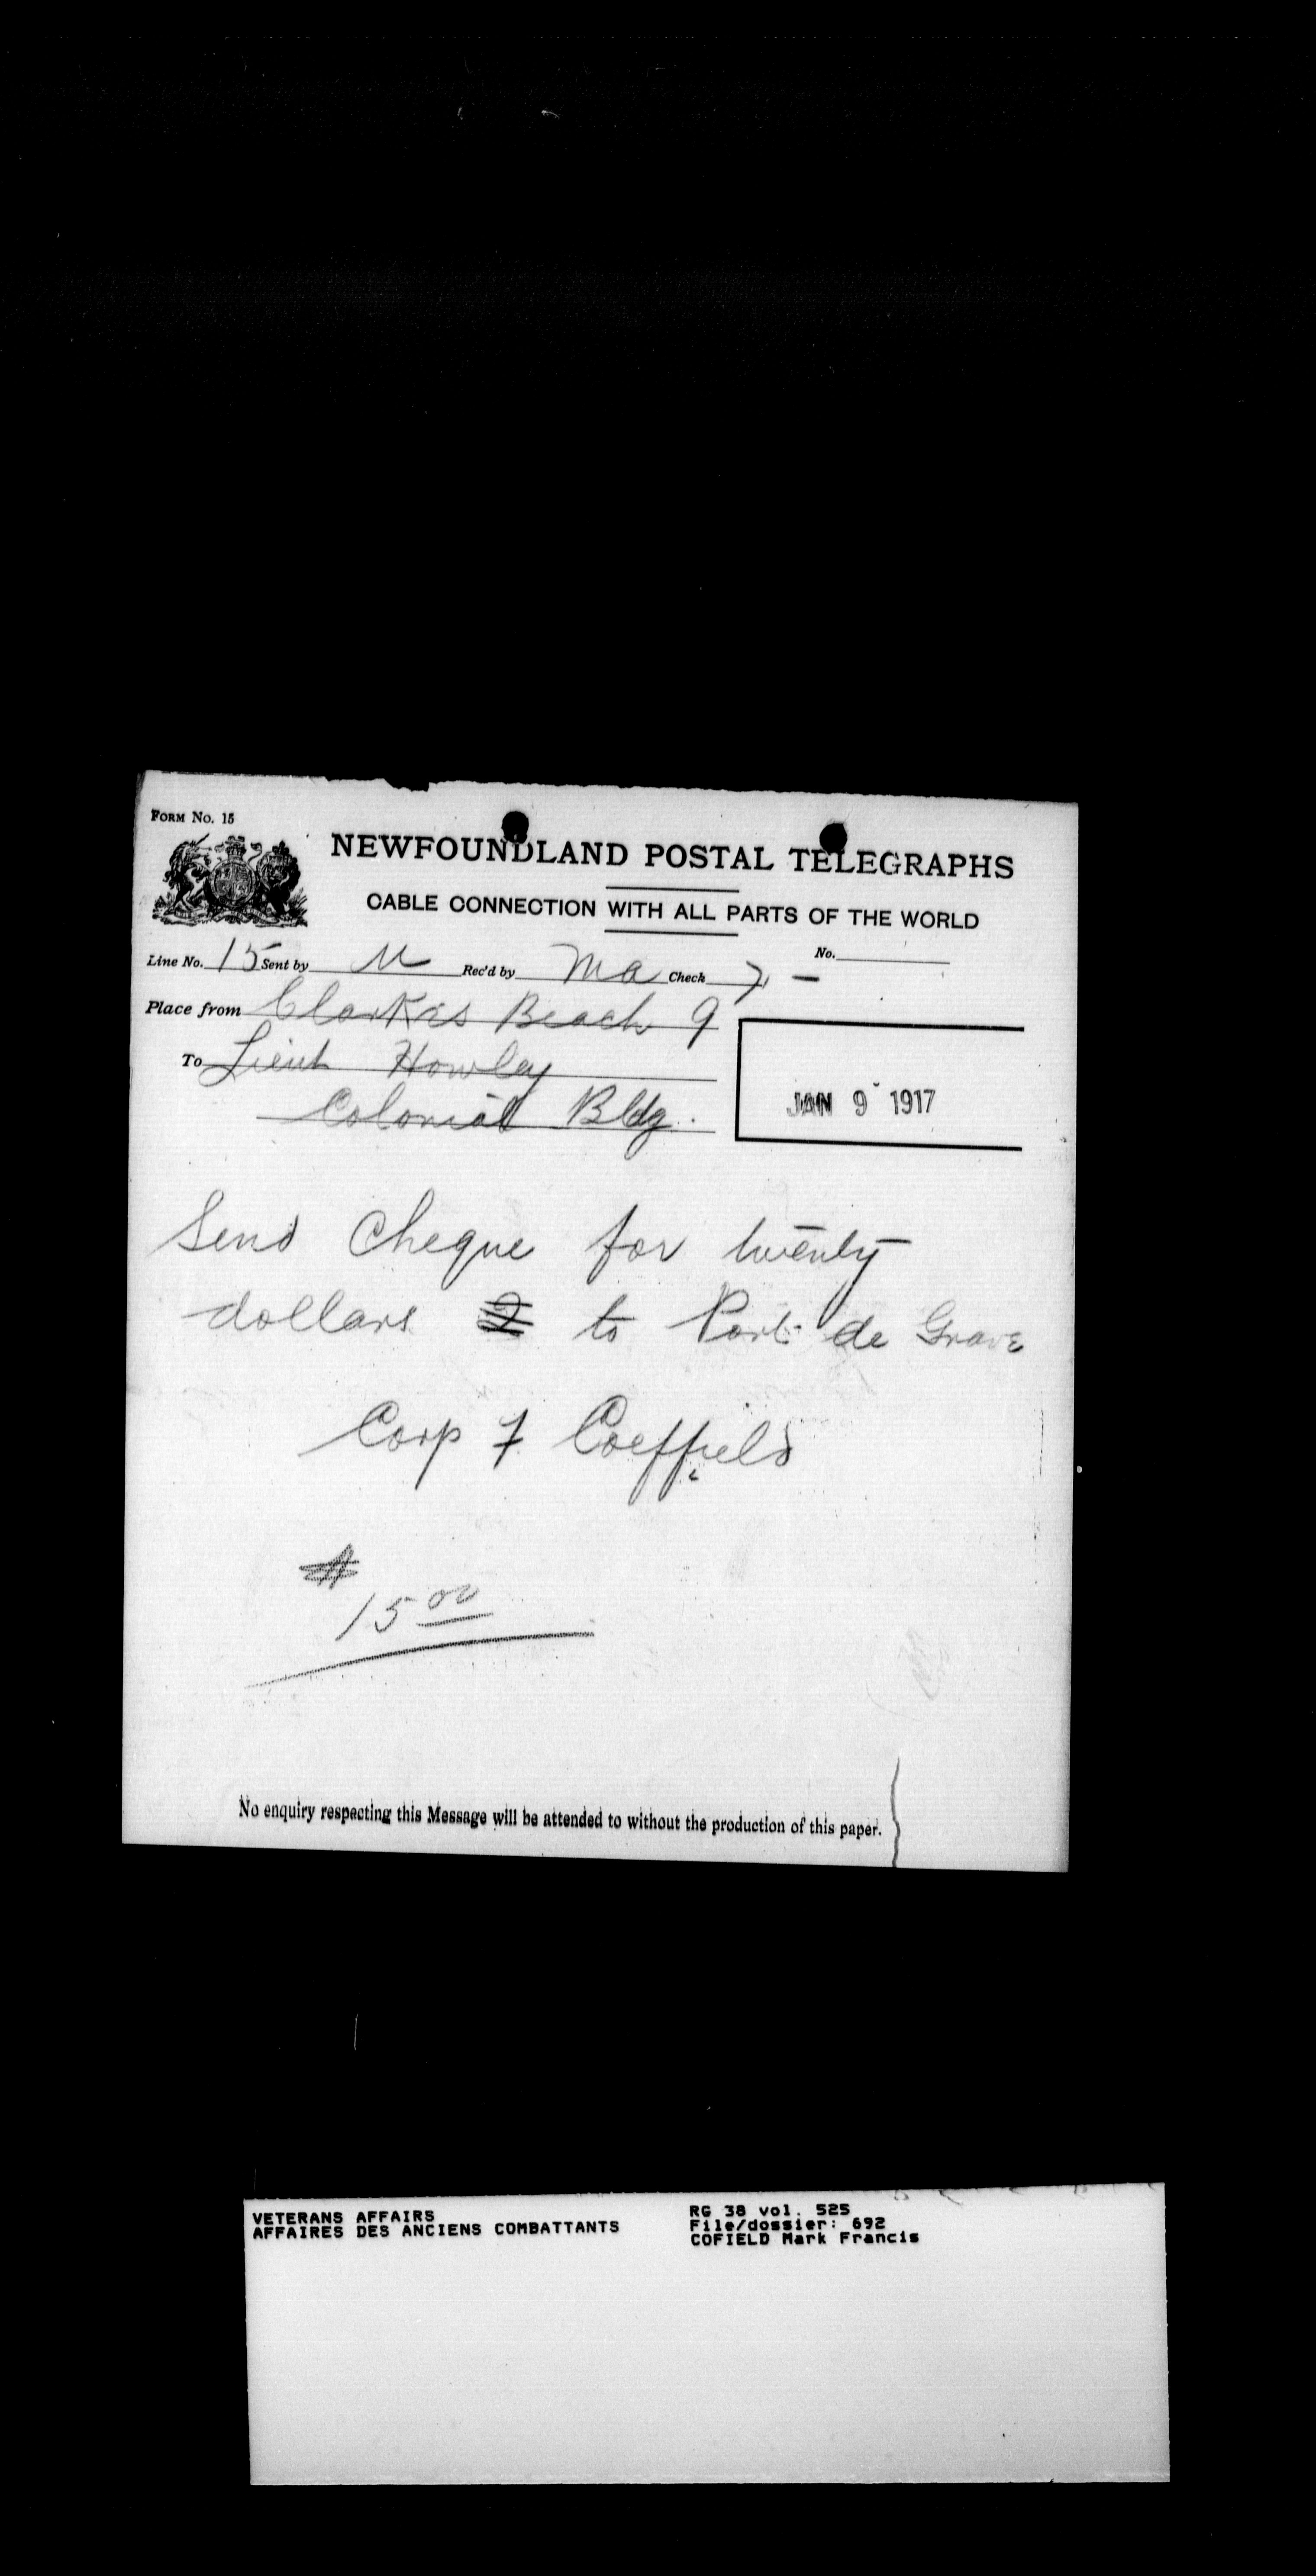 FORM No. 15
NEWFOUNDLAND POSTAL TELEGRAPHS
CABLE CONNECTION WITH ALL PARTS OF THE WORLD
Line No. 15 Sent by M Rec'd by Ma Check 7, - No.
Place from Clarkes Beach 9
To Lieut Howley
Colonial Bldg.
JAN 9 1917
Send Cheque for twenty
dollars to Port de Grave
Corp F Coeffield
15 00
No enquiry respecting this Message will be attended to without the production of this paper.
VETERANS AFFAIRS
AFFAIRES DES ANCIENS COMBATTANTS
RG 38 vol. 525
File/dossier: 692
COFIELD Mark Francis